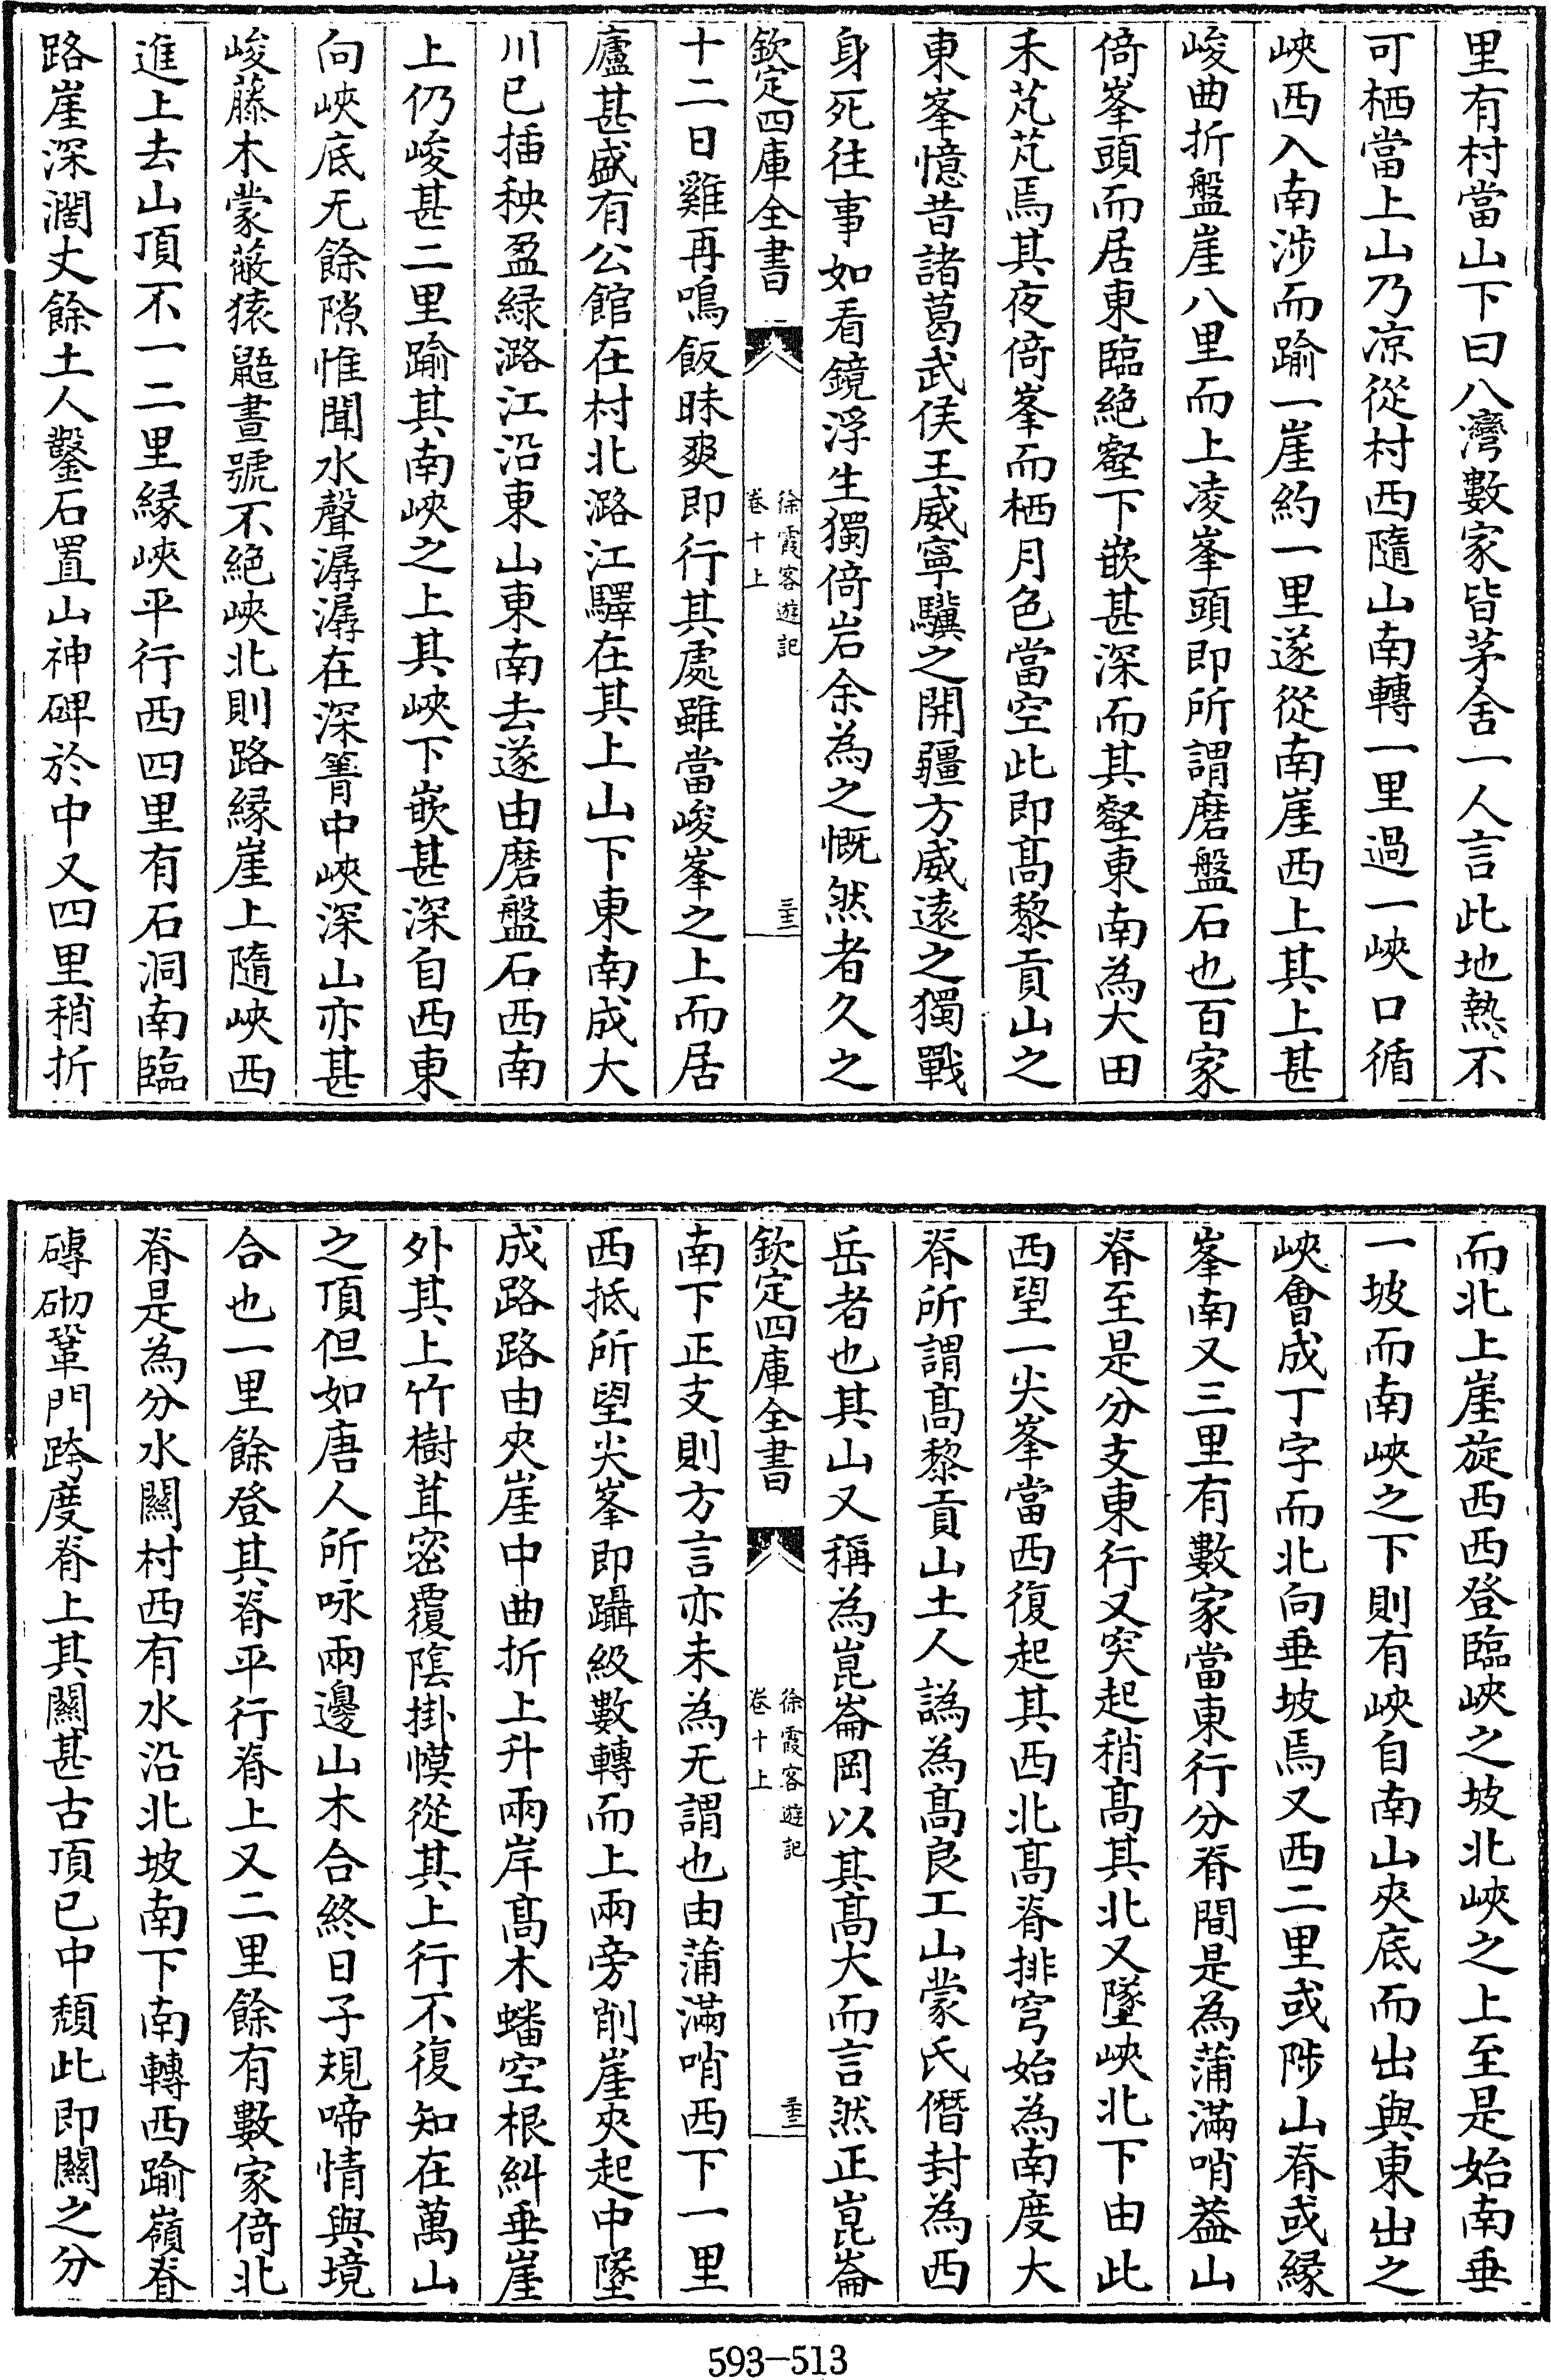 里有村當山下曰八灣數家皆茅舍一人言此地熱不
可栖當上山乃凉從村西隨山南轉一里過一峽口循
峽西入南涉而踰一崖約一里遂從南崖西上其上甚
峻曲折盤崖八里而上凌峯頭即所謂磨盤石也百家
倚峯頭而居東臨絶壑下嵌甚深而其壑東南為大田
禾芃芃焉其夜倚峯而栖月色當空此即髙黎貢山之
東峯憶昔諸葛武侯王威寧驥之開疆方威遠之獨戰
身死往事如看鏡浮生獨倚岩余為之慨然者久之
欽定四庫全書
徐霞客遊記
卷十上
三十三
十二日雞再鳴飯昧爽即行其處雖當峻峯之上而居
廬甚盛有公館在村北潞江驛在其上山下東南成大
川已插秧盈緑潞江沿東山東南去遂由磨盤石西南
上仍峻甚二里踰其南峽之上其峽下嵌甚深自西東
向峽底无餘隙惟聞水聲潺潺在深箐中峽深山亦甚
峻藤木蒙蔽猿鼯晝號不絶峽北則路緣崖上隨峽西
進上去山頂不一二里緣峽平行西四里有石洞南臨
路崖深濶丈餘土人鑿石置山神碑於中又四里稍折
而北上崖旋西西登臨峽之坡北峽之上至是始南垂
一坡而南峽之下則有峽自南山夾底而出與東出之
峽會成丁字而北向垂坡焉又西二里或陟山脊或緣
峯南又三里有數家當東行分脊間是為蒲滿哨葢山
脊至是分支東行又突起稍髙其北又墜峽北下由此
西望一尖峯當西復起其西北髙脊排穹始為南度大
脊所謂髙黎貢山土人譌為髙良工山蒙氏僭封為西
岳者也其山又稱為崑崙岡以其髙大而言然正崑崙
欽定四庫全書
徐霞客遊記
卷十上
南下正支則方言亦未為无謂也由蒲滿哨西下一里
西抵所望尖峯即躡級數轉而上兩旁削崖夾起中墜
成路路由夾崖中曲折上升兩岸髙木蟠空根糾垂崖
外其上竹樹茸密覆隂掛幙從其上行不復知在萬山
之頂但如唐人所咏兩邊山木合終日子規啼情與境
合也一里餘登其脊平行脊上又二里餘有數家倚北
脊是為分水關村西有水沿北坡南下南轉西踰嶺脊
磚砌鞏門跨度脊上其關甚古頂已中頹此即關之分
593—513